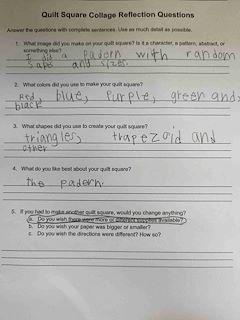 Quilt Square Collage Reflection Questions
Answer the questions with complete sentences. Use as much detail as possible.
1. What image did you make on your quilt square? Is it a character, a pattern, abstract, or
something else?
I did a padern with random
saps and sizes.
2. What colors did you use to make your quilt square?
Red, blue, purple, green and
black
3. What shapes did you use to create your quilt square?
triangles, trapezoid and
other
4. What do you like best about your quilt square?
the padern.
5. If you had to make another quilt square, would you change anything?
a. Do you wish there were more or different supplies available?
b. Do you wish your paper was bigger or smaller?
c. Do you wish the directions were different? How so?